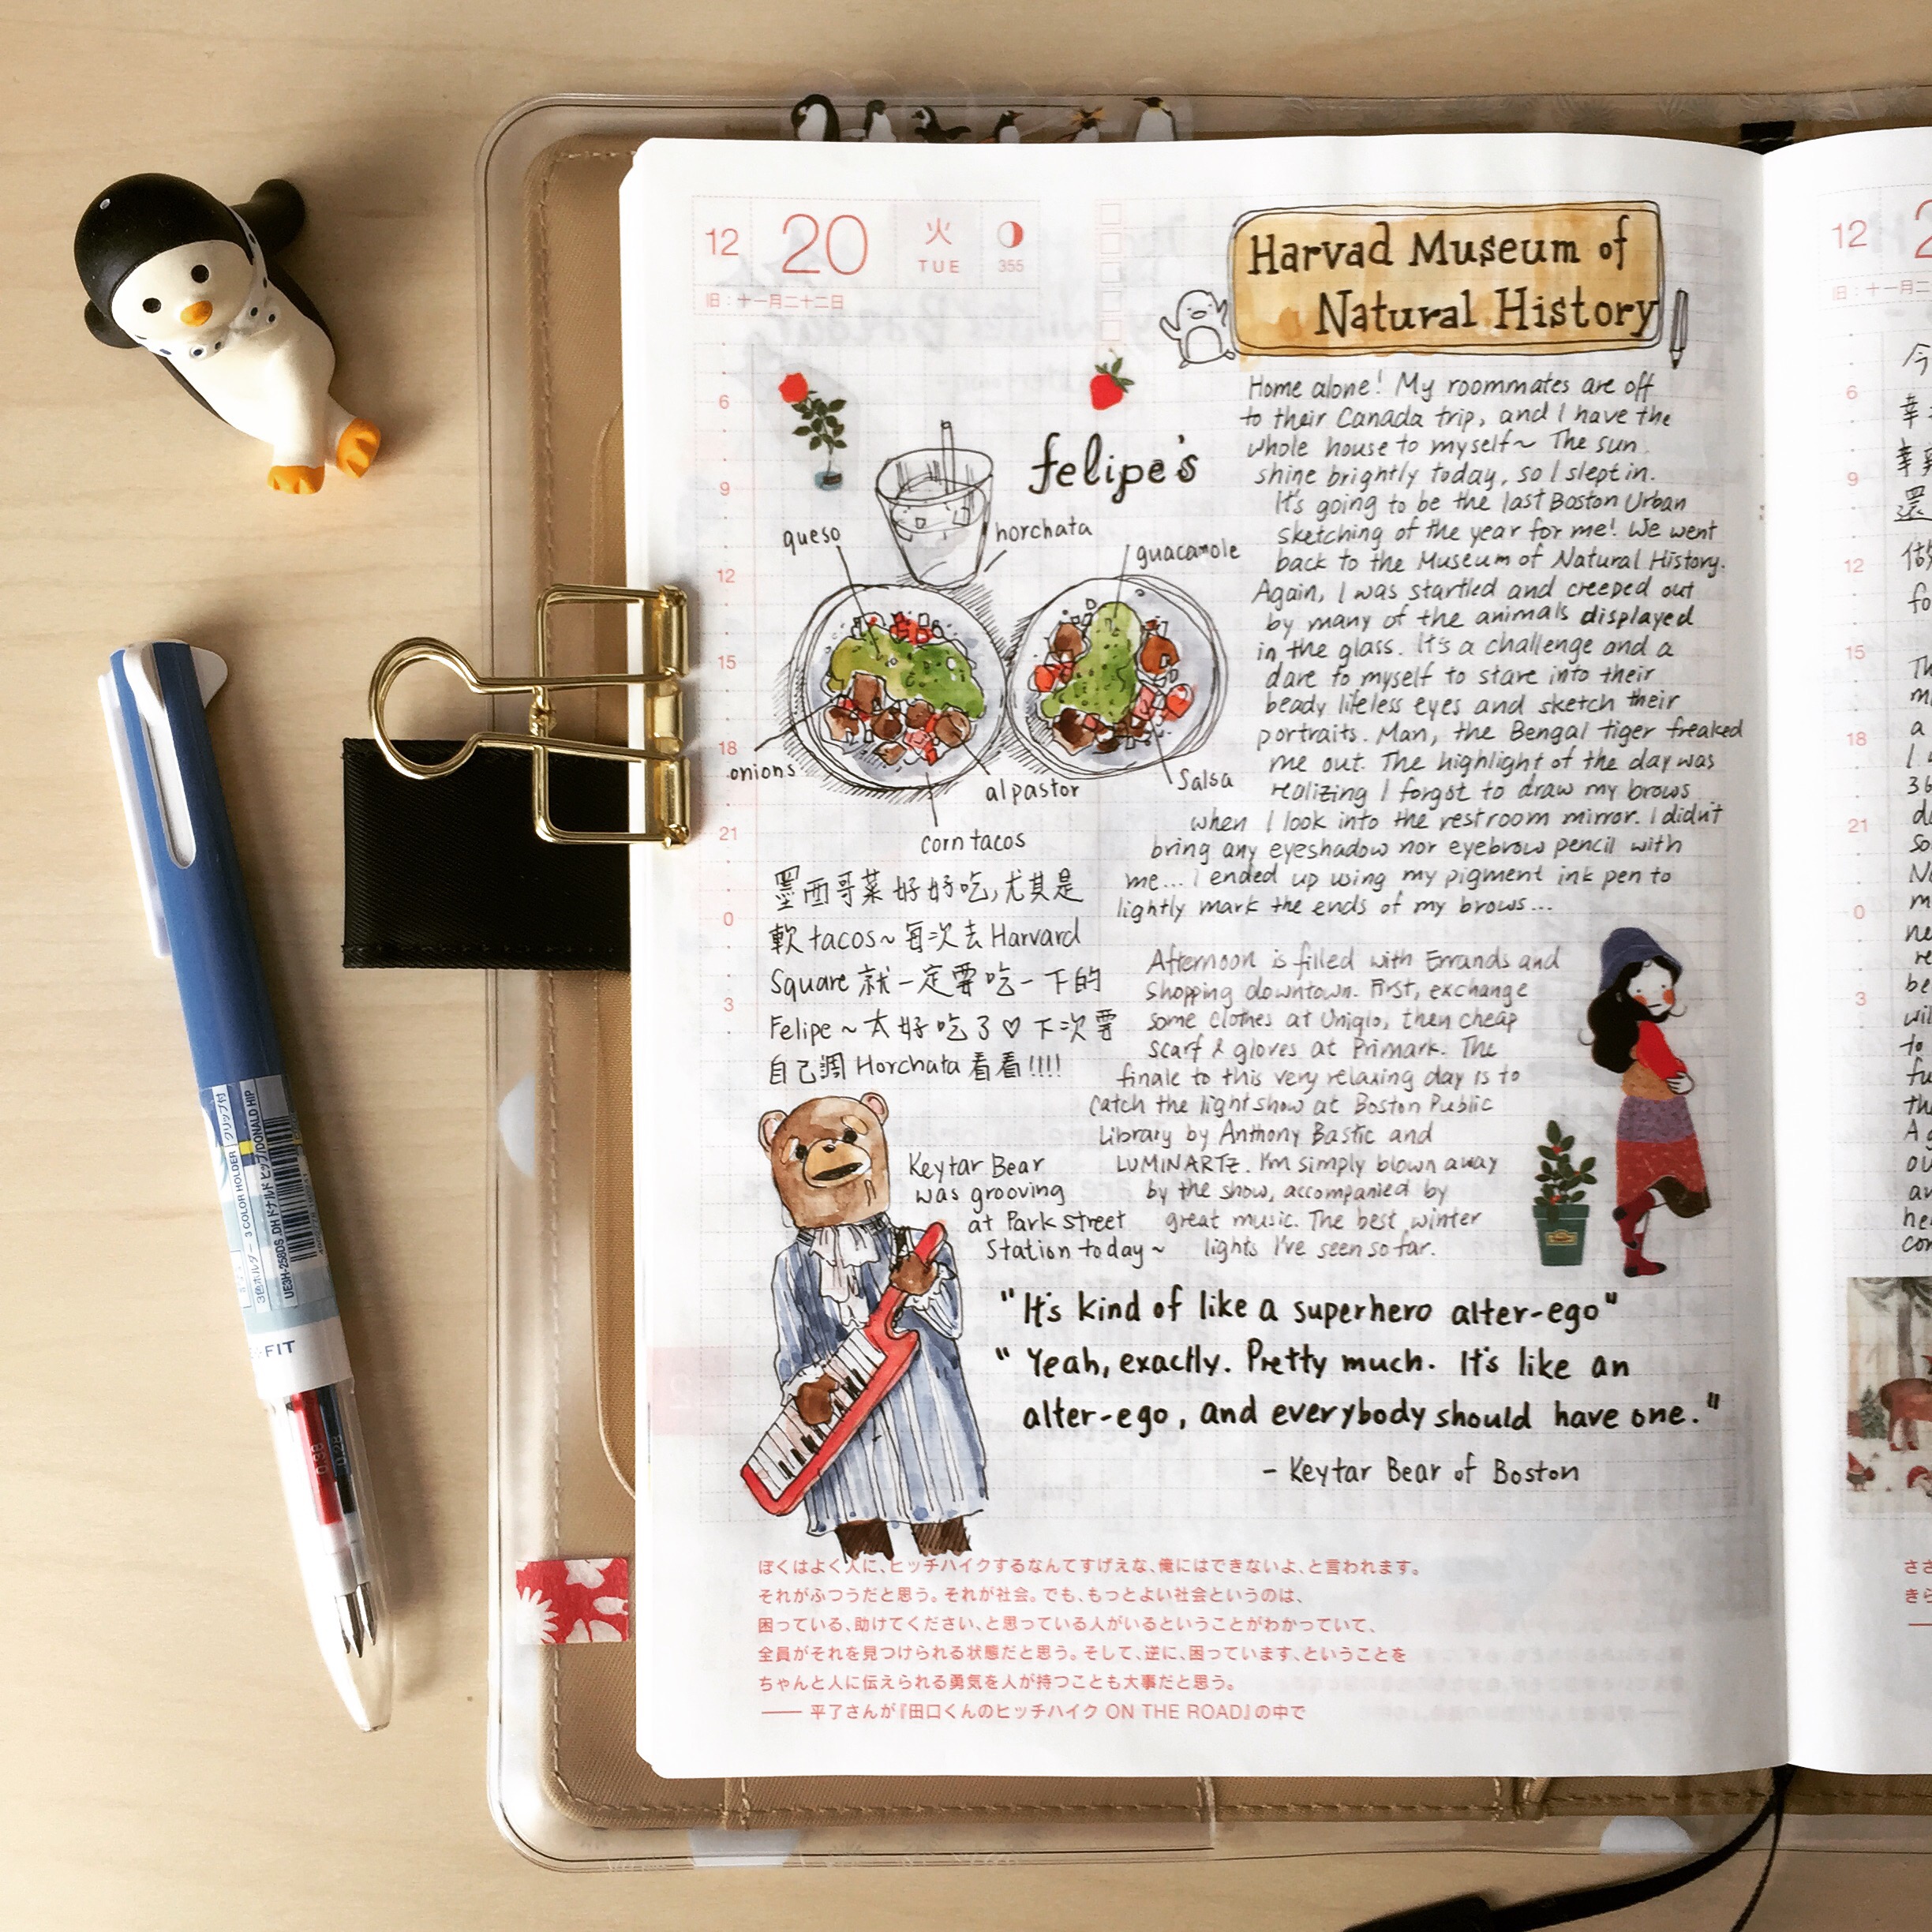 12
20
火
TUE
355
旧：十一月二十二日
Harvad Museum of
Natural History
6
9
12
15
18
21
0
3
felipe's
queso
horchata
guacamole
onions
al pastor
Salsa
corn tacos
墨西哥菜好好吃,尤其是
軟tacos~每次去Harvard
Square就一定要吃一下的
Felipe~太好吃了♡下次要
自己調Horchata看看!!!!
Home alone! My roommates are off
to their Canada trip, and I have the
whole house to myself~ The sun
shine brightly today, so I slept in.
It's going to be the last Boston Urban
sketching of the year for me! We went
back to the Museum of Natural History.
Again, I was startled and creeped out
by many of the animals displayed
in the glass. It's a challenge and a
dare to myself to stare into their
beady lifeless eyes and sketch their
portraits. Man, the Bengal tiger freaked
me out. The highlight of the day was
realizing I forgot to draw my brows
when I look into the restroom mirror. I didn't
bring any eyeshadow nor eyebrow pencil with
me... I ended up using my pigment ink pen to
lightly mark the ends of my brows...
Afternoon is filled with Errands and
Shopping downtown. First, exchange
some clothes at Uniqlo, then cheap
scarf & gloves at Primark. The
finale to this very relaxing day is to
catch the lightshow at Boston Public
Library by Anthony Bastic and
LUMINARTZ. I'm simply blown away
by the show, accompanied by
great music. The best winter
lights I've seen so far.
Keytar Bear
was grooving
at Park street
Station today~
"It's kind of like a superhero alter-ego"
"Yeah, exactly. Pretty much. It's like an
alter-ego, and everybody should have one."
- Keytar Bear of Boston
ぼくはよく人に、ヒッチハイクするなんてすげえな、俺にはできないよ、と言われます。
それがふつうだと思う。それが社会。でも、もっとよい社会というのは、
困っている、助けてください、と思っている人がいるということがわかっていて、
全員がそれを見つけられる状態だと思う。そして、逆に、困っています、ということを
ちゃんと人に伝えられる勇気を人が持つことも大事だと思う。
—— 平了さんが『田口くんのヒッチハイク ON THE ROAD』の中で
12
6
9
12
15
18
21
0
3
3色ホルダー 3 COLOR HOLDER クリップ付
UE3H-258DS .DH ドナルド ヒップ/DONALD HIP
FIT
0.38
0.28